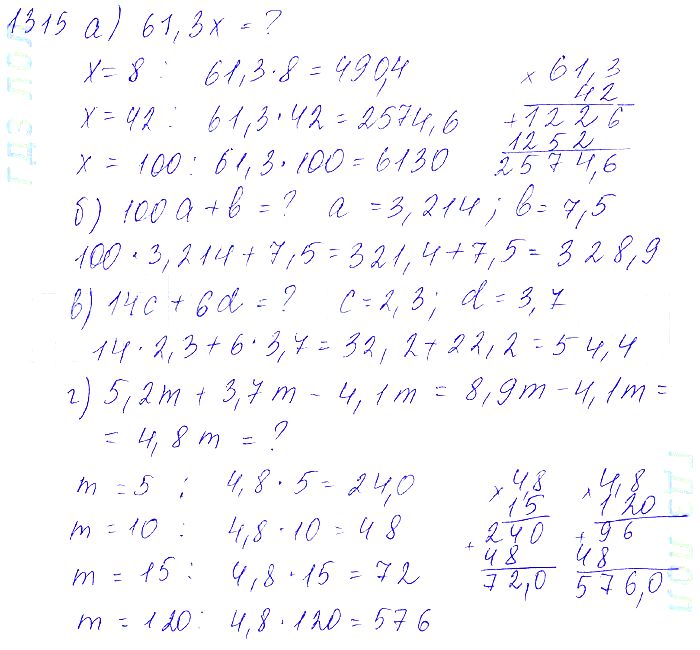 1315 а) 61,3x = ?
x = 8 : 61,3 · 8 = 490,4
x = 42 : 61,3 · 42 = 2574,6
x = 100 : 61,3 · 100 = 6130
× 61,3
42
+ 1226
1252
2574,6
б) 100a + b = ? a = 3,214; b = 7,5
100 · 3,214 + 7,5 = 321,4 + 7,5 = 328,9
в) 14c + 6d = ? c = 2,3; d = 3,7
14 · 2,3 + 6 · 3,7 = 32,2 + 22,2 = 54,4
г) 5,2m + 3,7m - 4,1m = 8,9m - 4,1m =
= 4,8m = ?
m = 5 : 4,8 · 5 = 24,0
m = 10 : 4,8 · 10 = 48
m = 15 : 4,8 · 15 = 72
m = 120 : 4,8 · 120 = 576
× 4,8
15
+ 240
48
72,0
× 4,8
120
+ 96
48
576,0